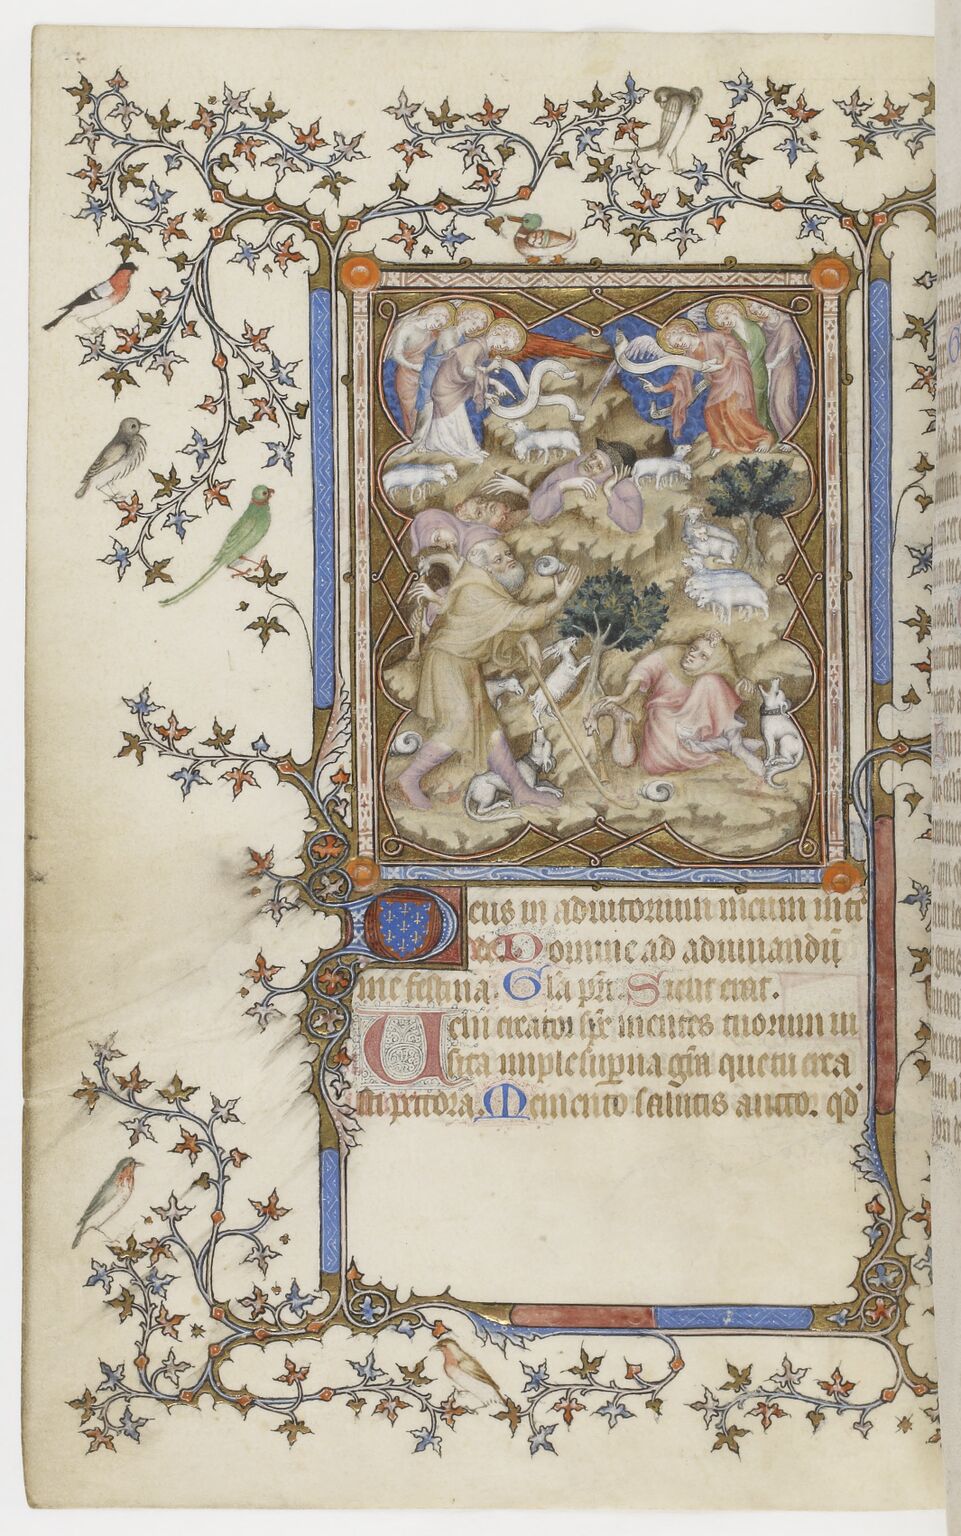 Deus in adiutorium meum inten
de Domine ad adiuuandū
me festina. Gl̄a pr̄i. Sicut erat.
Ueni creator sp̄s mentes tuorum ui
sita imple sup̄na gr̄a que tu crea
sti pectora. Memento salutis auctor. qd̕